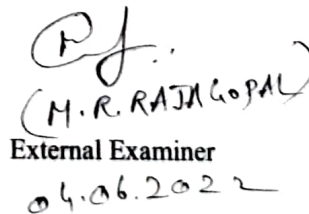 (M.R. RAJAGOPAL)
External Examiner
04.06.2022